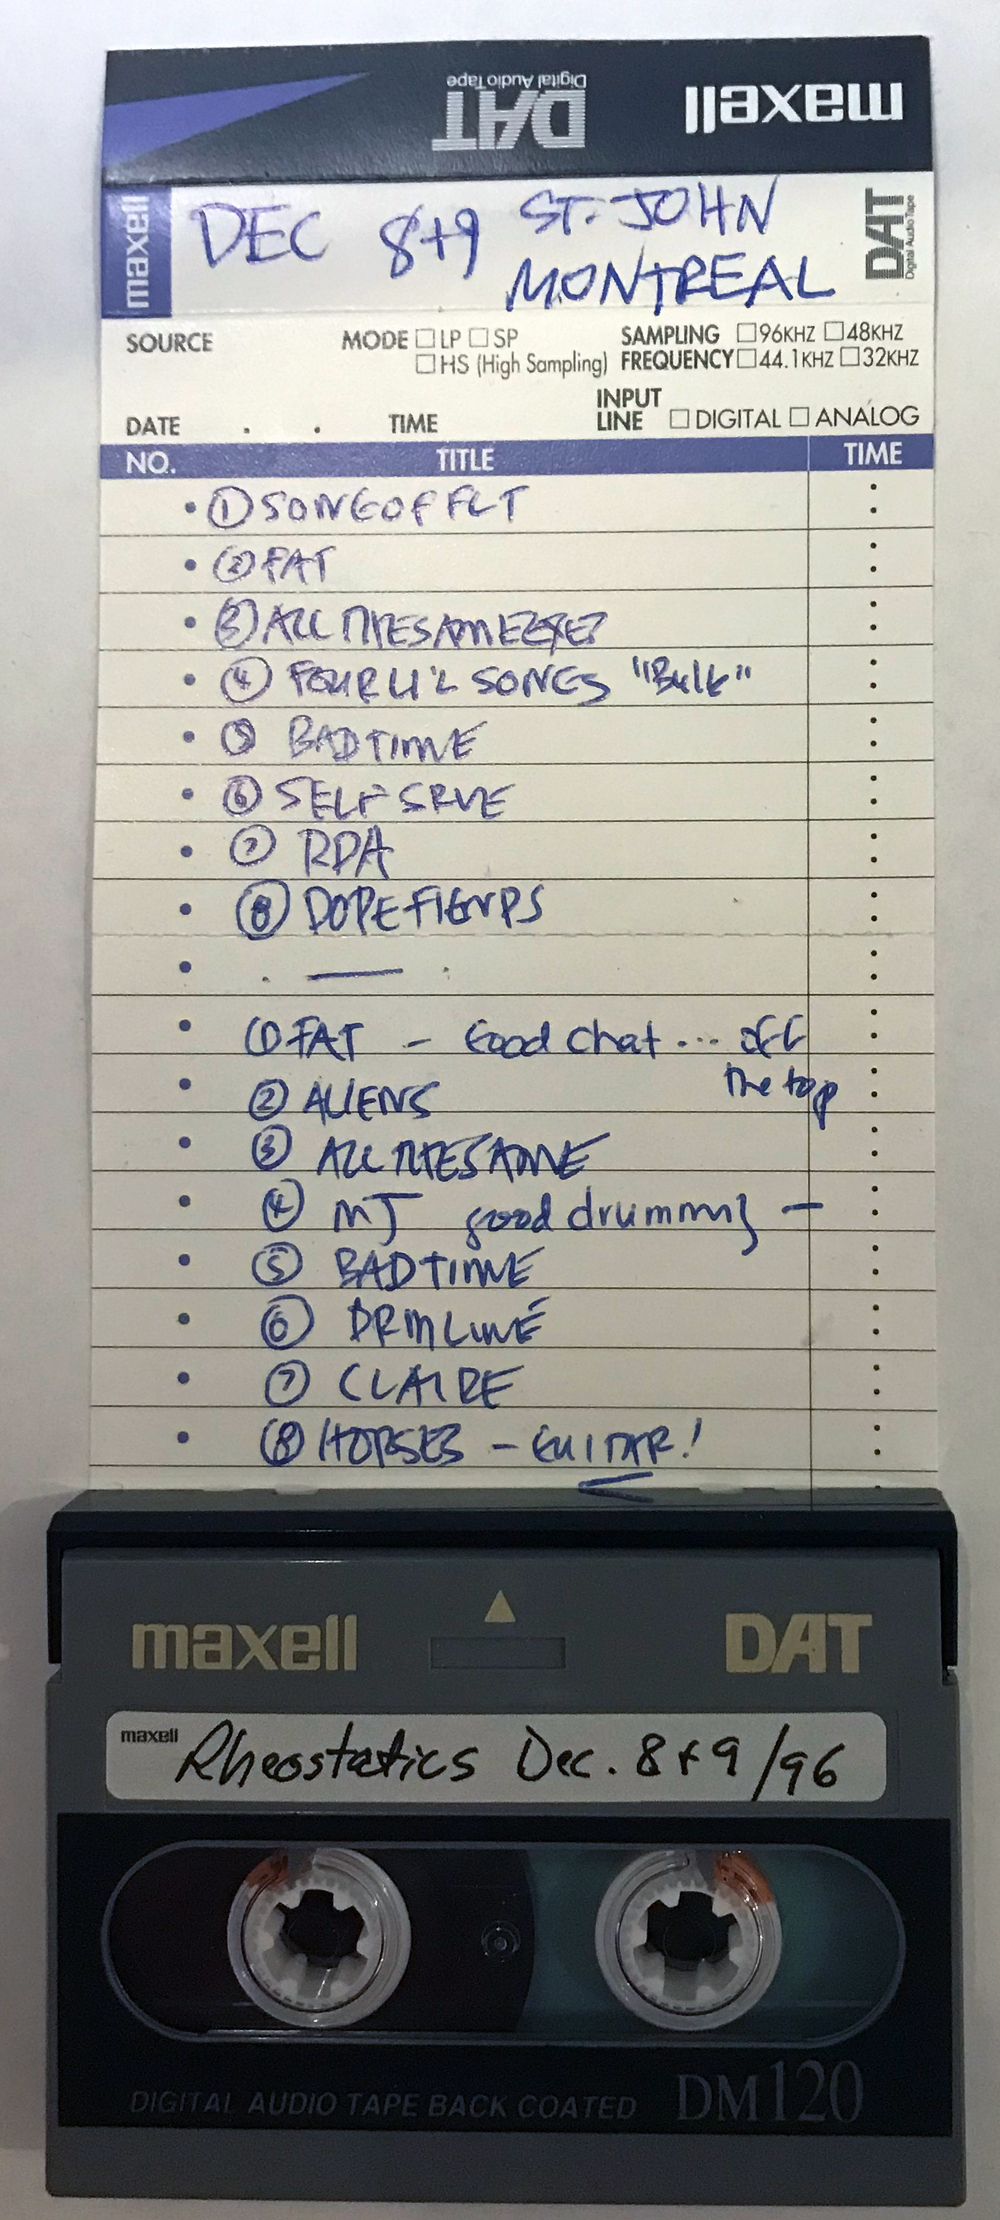 maxell DAT
Digital Audio Tape
maxell DEC 8+9 ST. JOHN DAT Digital Audio Tape
MONTREAL
SOURCE MODE □ LP □ SP SAMPLING □ 96KHZ □ 48KHZ
□ HS (High Sampling) FREQUENCY □ 44.1KHZ □ 32KHZ
DATE . . TIME INPUT LINE □ DIGITAL □ ANALOG
NO. TITLE TIME
• ① SONGOFFLT :
• ② FAT :
• ③ ALL THE SAME :
• ④ FOUR LI'L SONGS "Bulk" :
• ⑤ BAD TIME :
• ⑥ SELF SRVE :
• ⑦ RDA :
• ⑧ DOPE FIENDS :
• . — . :
• ① FAT — Good chat... off :
the top
• ② ALIENS :
• ③ ALL THE SAME :
• ④ MJ good drumming — :
• ⑤ BAD TIME :
• ⑥ DRMLINE :
• ⑦ CLAIRE :
• ⑧ HORSES — GUITAR! :
maxell DAT
maxell Rheostatics Dec. 8+9/96
DIGITAL AUDIO TAPE BACK COATED DM120